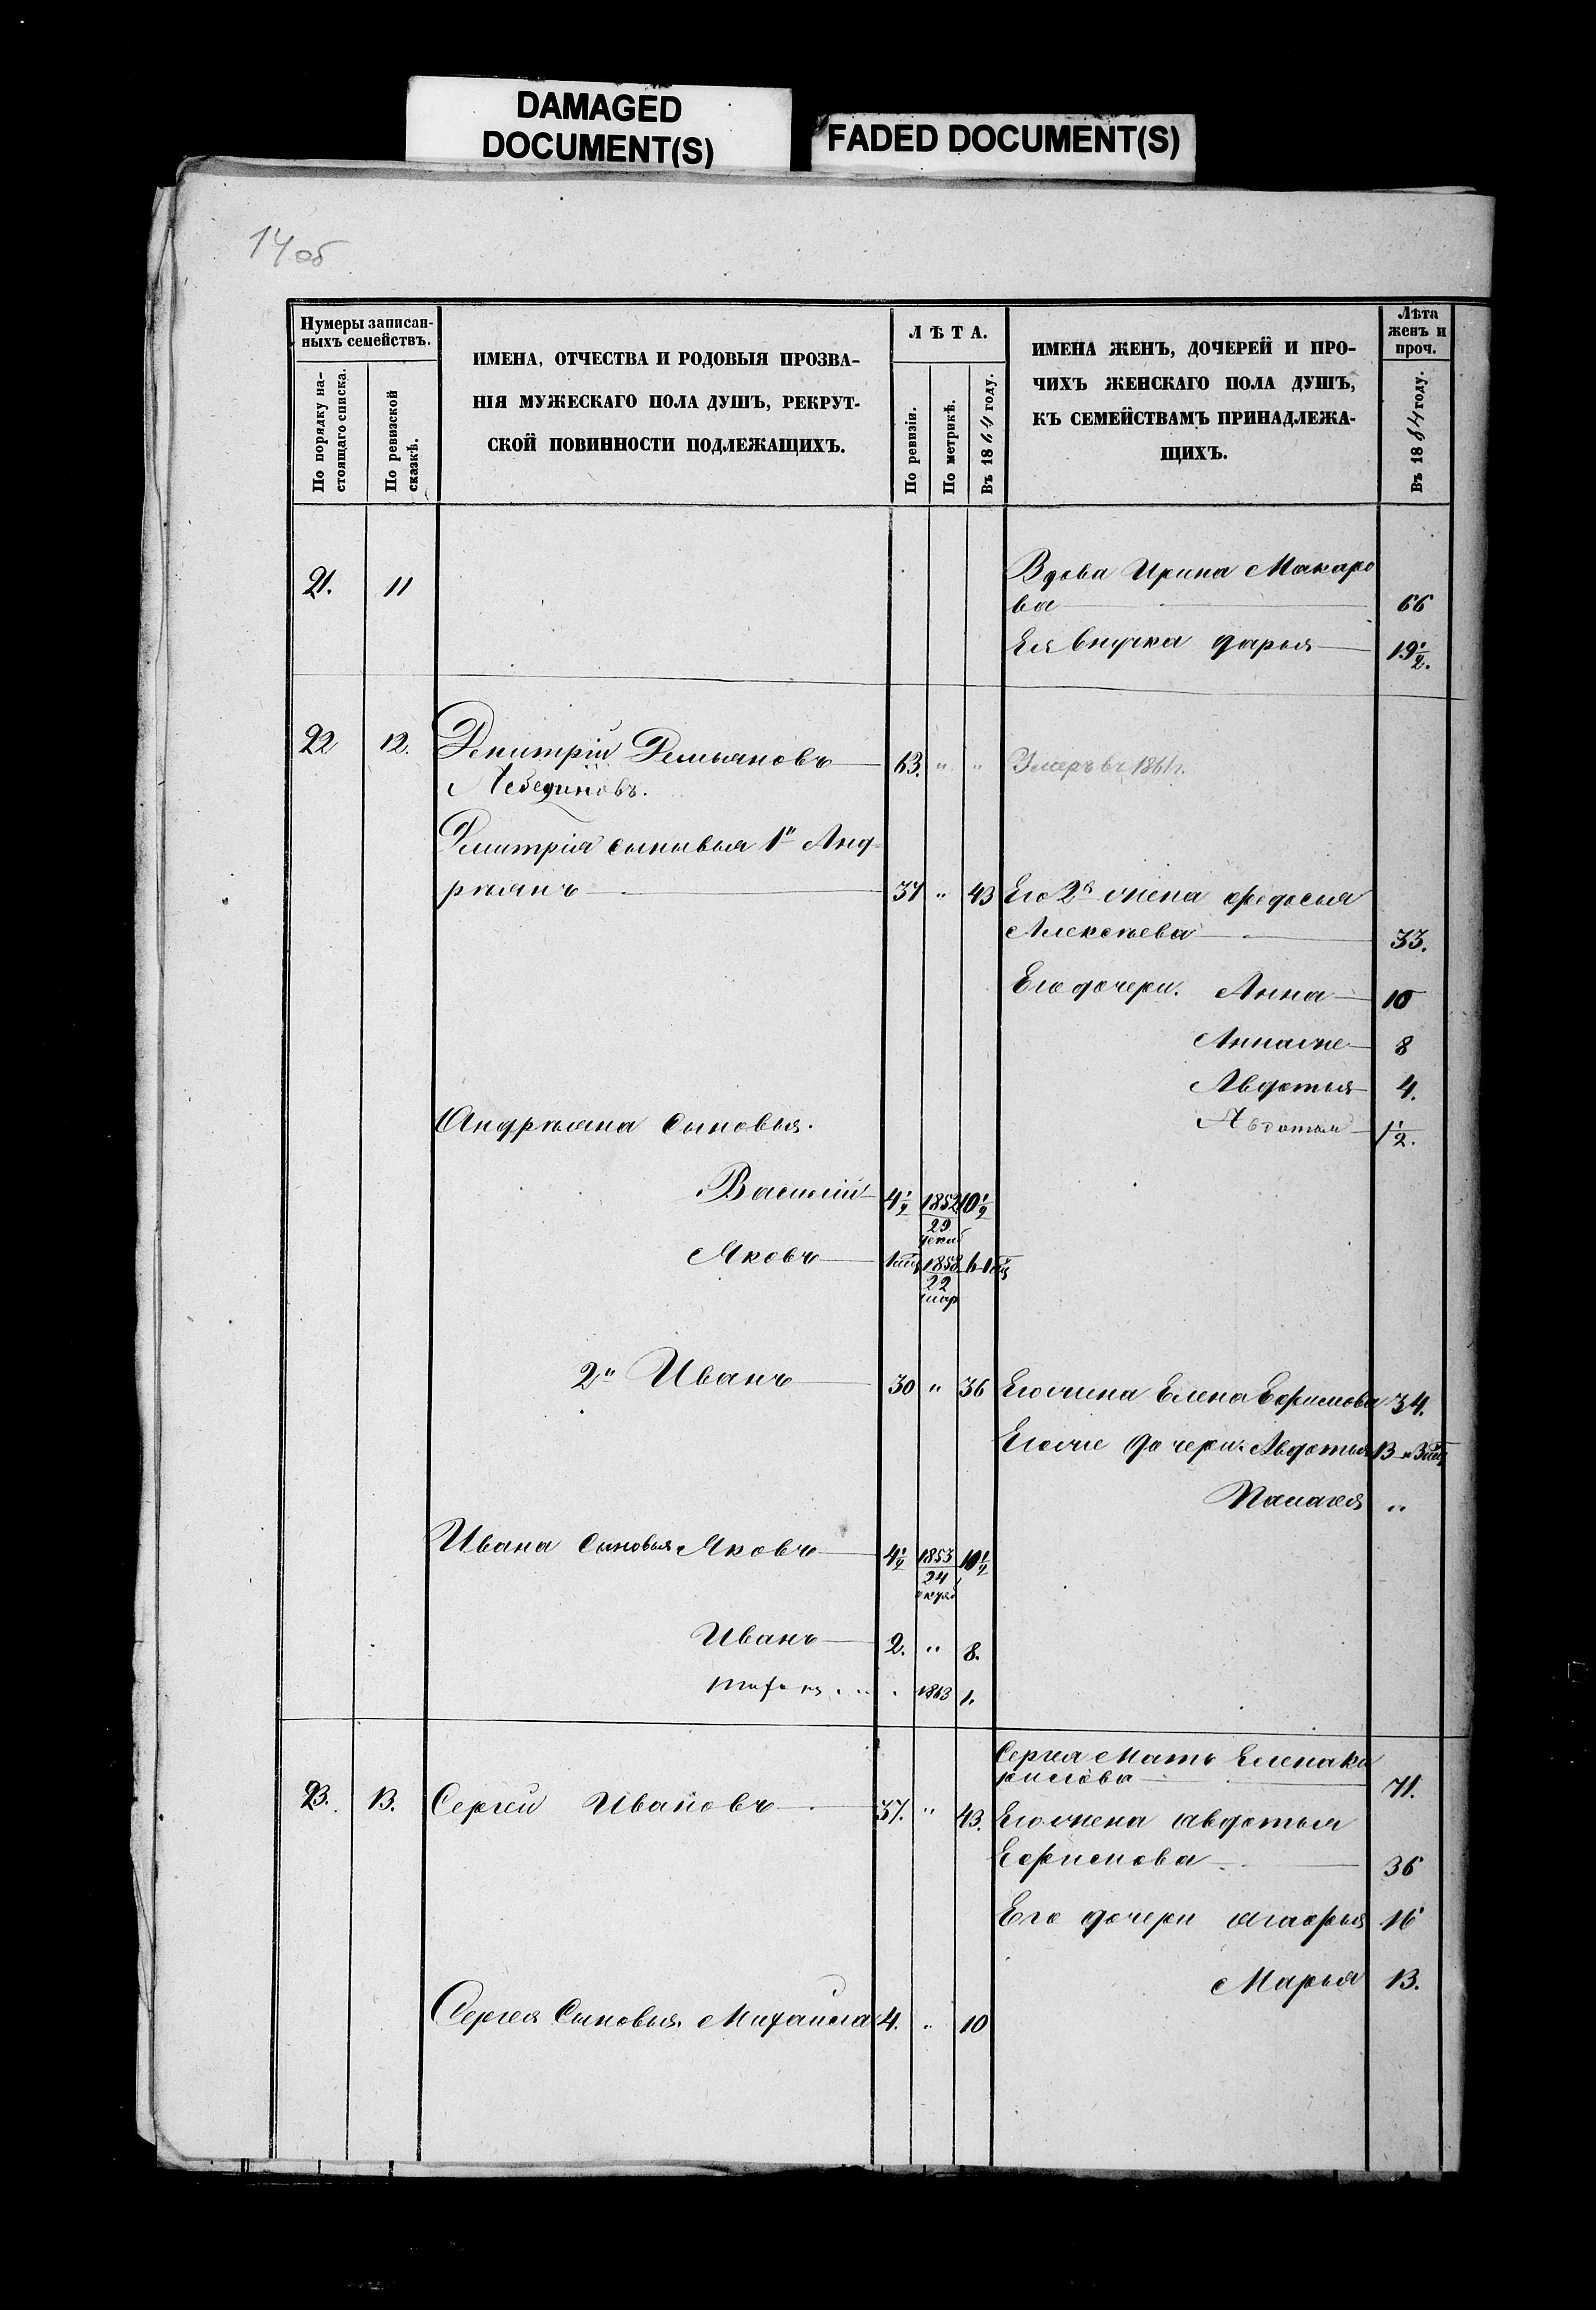 DAMAGED
DOCUMENT(S)
FADED DOCUMENT(S)
14 об
Нумеры записан-
ныхъ семействъ.
По порядку на-
стоящаго списка.
По ревизской
сказкѣ.
ИМЕНА, ОТЧЕСТВА И РОДОВЫЯ ПРОЗВА-
НІЯ МУЖЕСКАГО ПОЛА ДУШЪ, РЕКРУТ-
СКОЙ ПОВИННОСТИ ПОДЛЕЖАЩИХЪ.
ЛѢТА.
По ревизіи.
По метрикѣ.
Въ 1864 году.
ИМЕНА ЖЕНЪ, ДОЧЕРЕЙ И ПРО-
ЧИХЪ ЖЕНСКАГО ПОЛА ДУШЪ,
КЪ СЕМЕЙСТВАМЪ ПРИНАДЛЕЖА-
ЩИХЪ.
Лѣта
женъ и
проч.
Въ 1864 году.
21. 11 Вдова Ирина Макаро
ва 66
Ея внучка Дарья 19 1/2.
22 12. Дмитрій Демьяновъ 63. " " Умеръ въ 1861 г.
Лебединовъ.
Дмитрія сыновья 1й Анд-
реянъ 37 " 43 Его 2я жена Федосья
Алексѣева 33.
Его дочери. Анна 10
Анна же 8
Авдотья 4.
Андреяна сыновья. Авдотья 1 1/2.
Василій 4 1/2 1852 10 1/2
29
декаб
Яковъ 1 мѣц 1858 6-1 мц
22
мар
2й Иванъ 30 " 36 Его жена Елена Ефимова 34.
Его же дочери. Авдотья 13 и 3 мѣц
Палагея "
Ивана сыновья Яковъ 4 1/2 1853 10 1/2
24
Иванъ 2. " 8.
1863 1.
Сергея мать Елена Ки
рилова 71.
23. 13. Сергей Ивановъ 37. " 43. Его жена Авдотья
Ефимова 36
Его дочери Агафья 16
Марья 13.
Сергея сыновья. Михаила 4. " 10